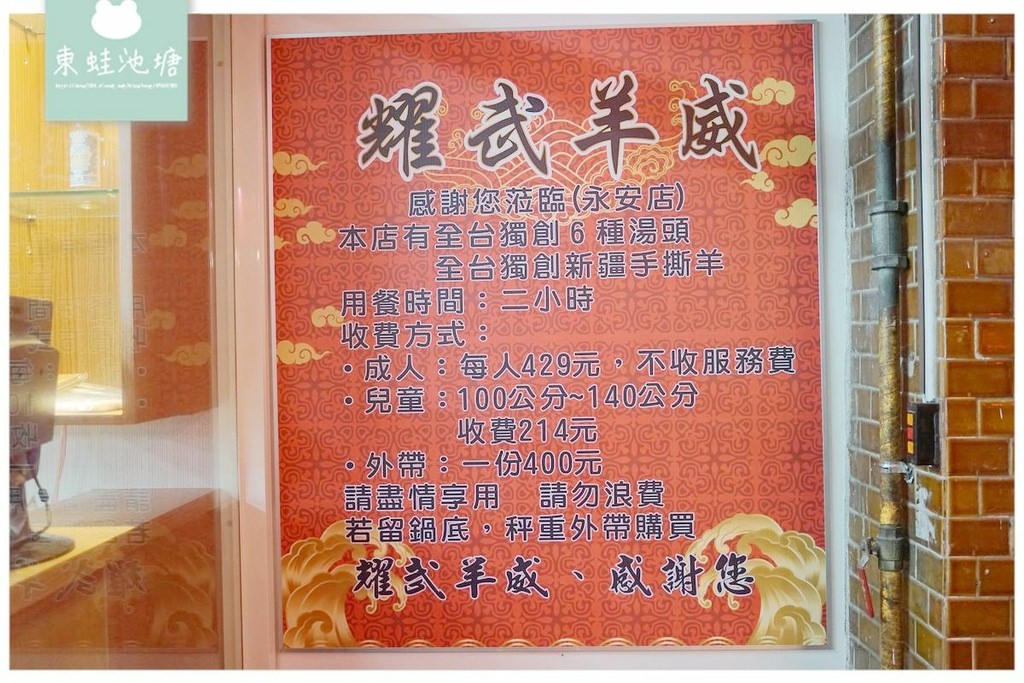 東蛙池塘
耀武羊威
感謝您蒞臨(永安店)
本店有全台獨創 6 種湯頭
全台獨創新疆手撕羊
用餐時間：二小時
收費方式：
・成人：每人429元，不收服務費
・兒童：100公分~140公分
收費214元
・外帶：一份400元
請盡情享用　請勿浪費
若留鍋底，秤重外帶購買
耀武羊威、感謝您